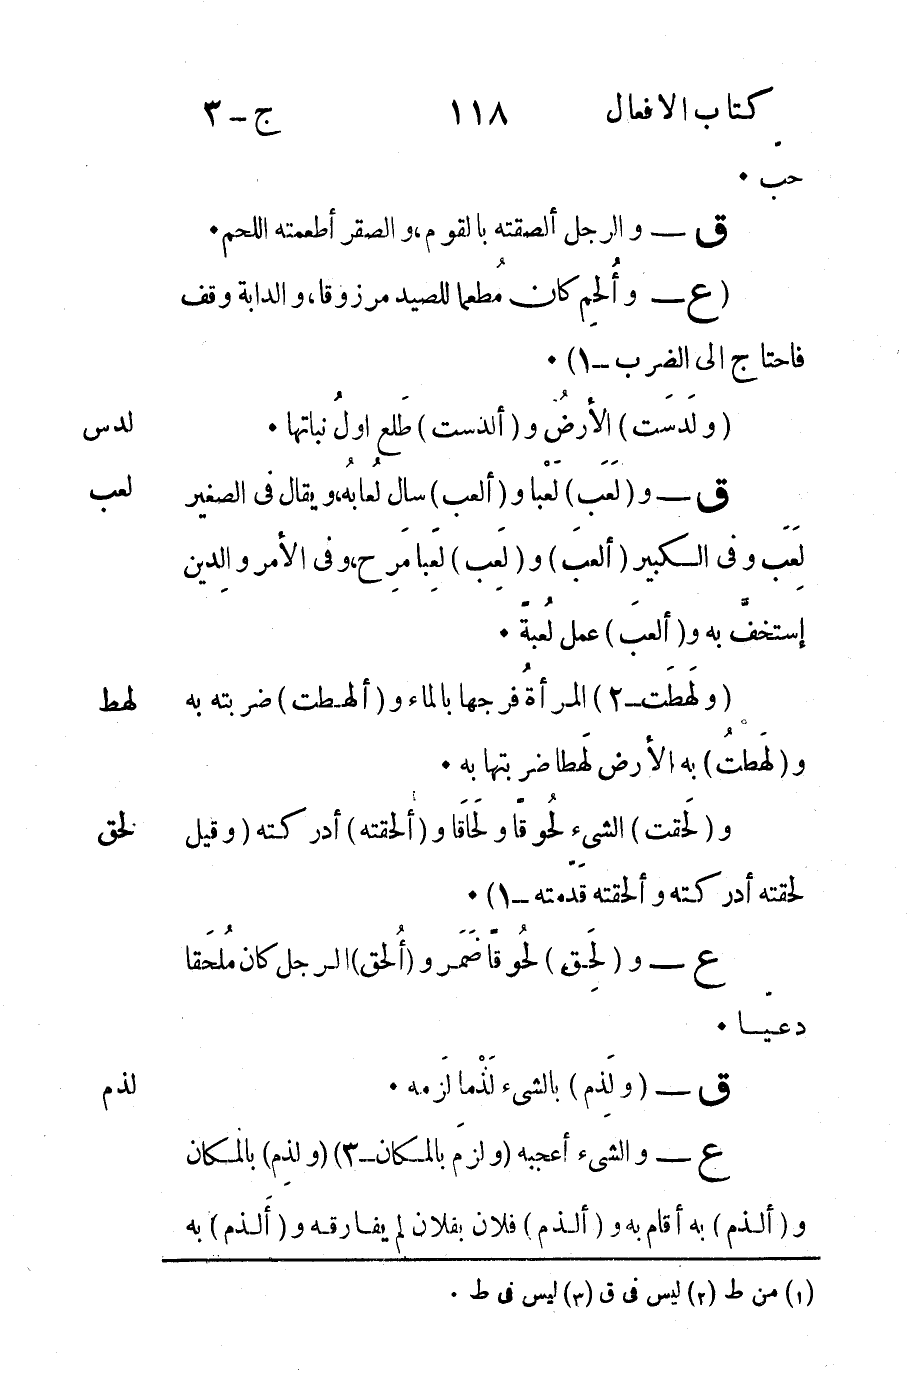 كتاب الافعال ١١٨ ج – ٣
حبّ ٠
ق — و الرجل ألصقته بالقوم، و الصقر أطعمته اللحم ٠
(ع — و أُلحِم كان مُطعما للصيد مرزوقا، و الدابة وقف
فاحتاج الى الضرب – ١) ٠
(و لَدَسَت) الأرضُ و (ألدست) طَلع اولُ نباتها ٠ لدس
ق — و (لَعَب) لَعْبا و (ألعب) سال لُعابُه، و يقال فى الصغير لعب
لَعَب و فى الكبير (ألعبَ) و (لَعِب) لَعِبًا مَرِح، و فى الأمر و الدِين
إستخفَّ به و (ألعبَ) عمل لُعبةً ٠
(و لَهَطَت – ٢) المرأةُ فرجها بالماء و (ألهطت) ضربته به لهط
و (لَهَطْتُ) به الأرض لَهطا ضربتها به ٠
و (لَحَقت) الشىء لُحوقًا و لَحَاقا و (ألحقته) أدركته (و قيل لحق
لحقته أدركته و ألحقته قَدّمته – ١) ٠
ع — و (لَحِق) لُحوقًا ضَمَر و (أُلحق) الرجل كان مُلحَقا
دعيّا ٠
ق — (و لَذِم) بالشىء لَذْما لَزمه ٠ لذم
ع — و الشىء أعجبه (و لزمَ بالمكان – ٣) (و لذِم) بالمكان
و (ألذم) به أقام به و (ألذم) فلان بفلان لم يفارقه و (أَلذم) به
(١) من ط (٢) ليس فى ق (٣) ليس فى ط ٠